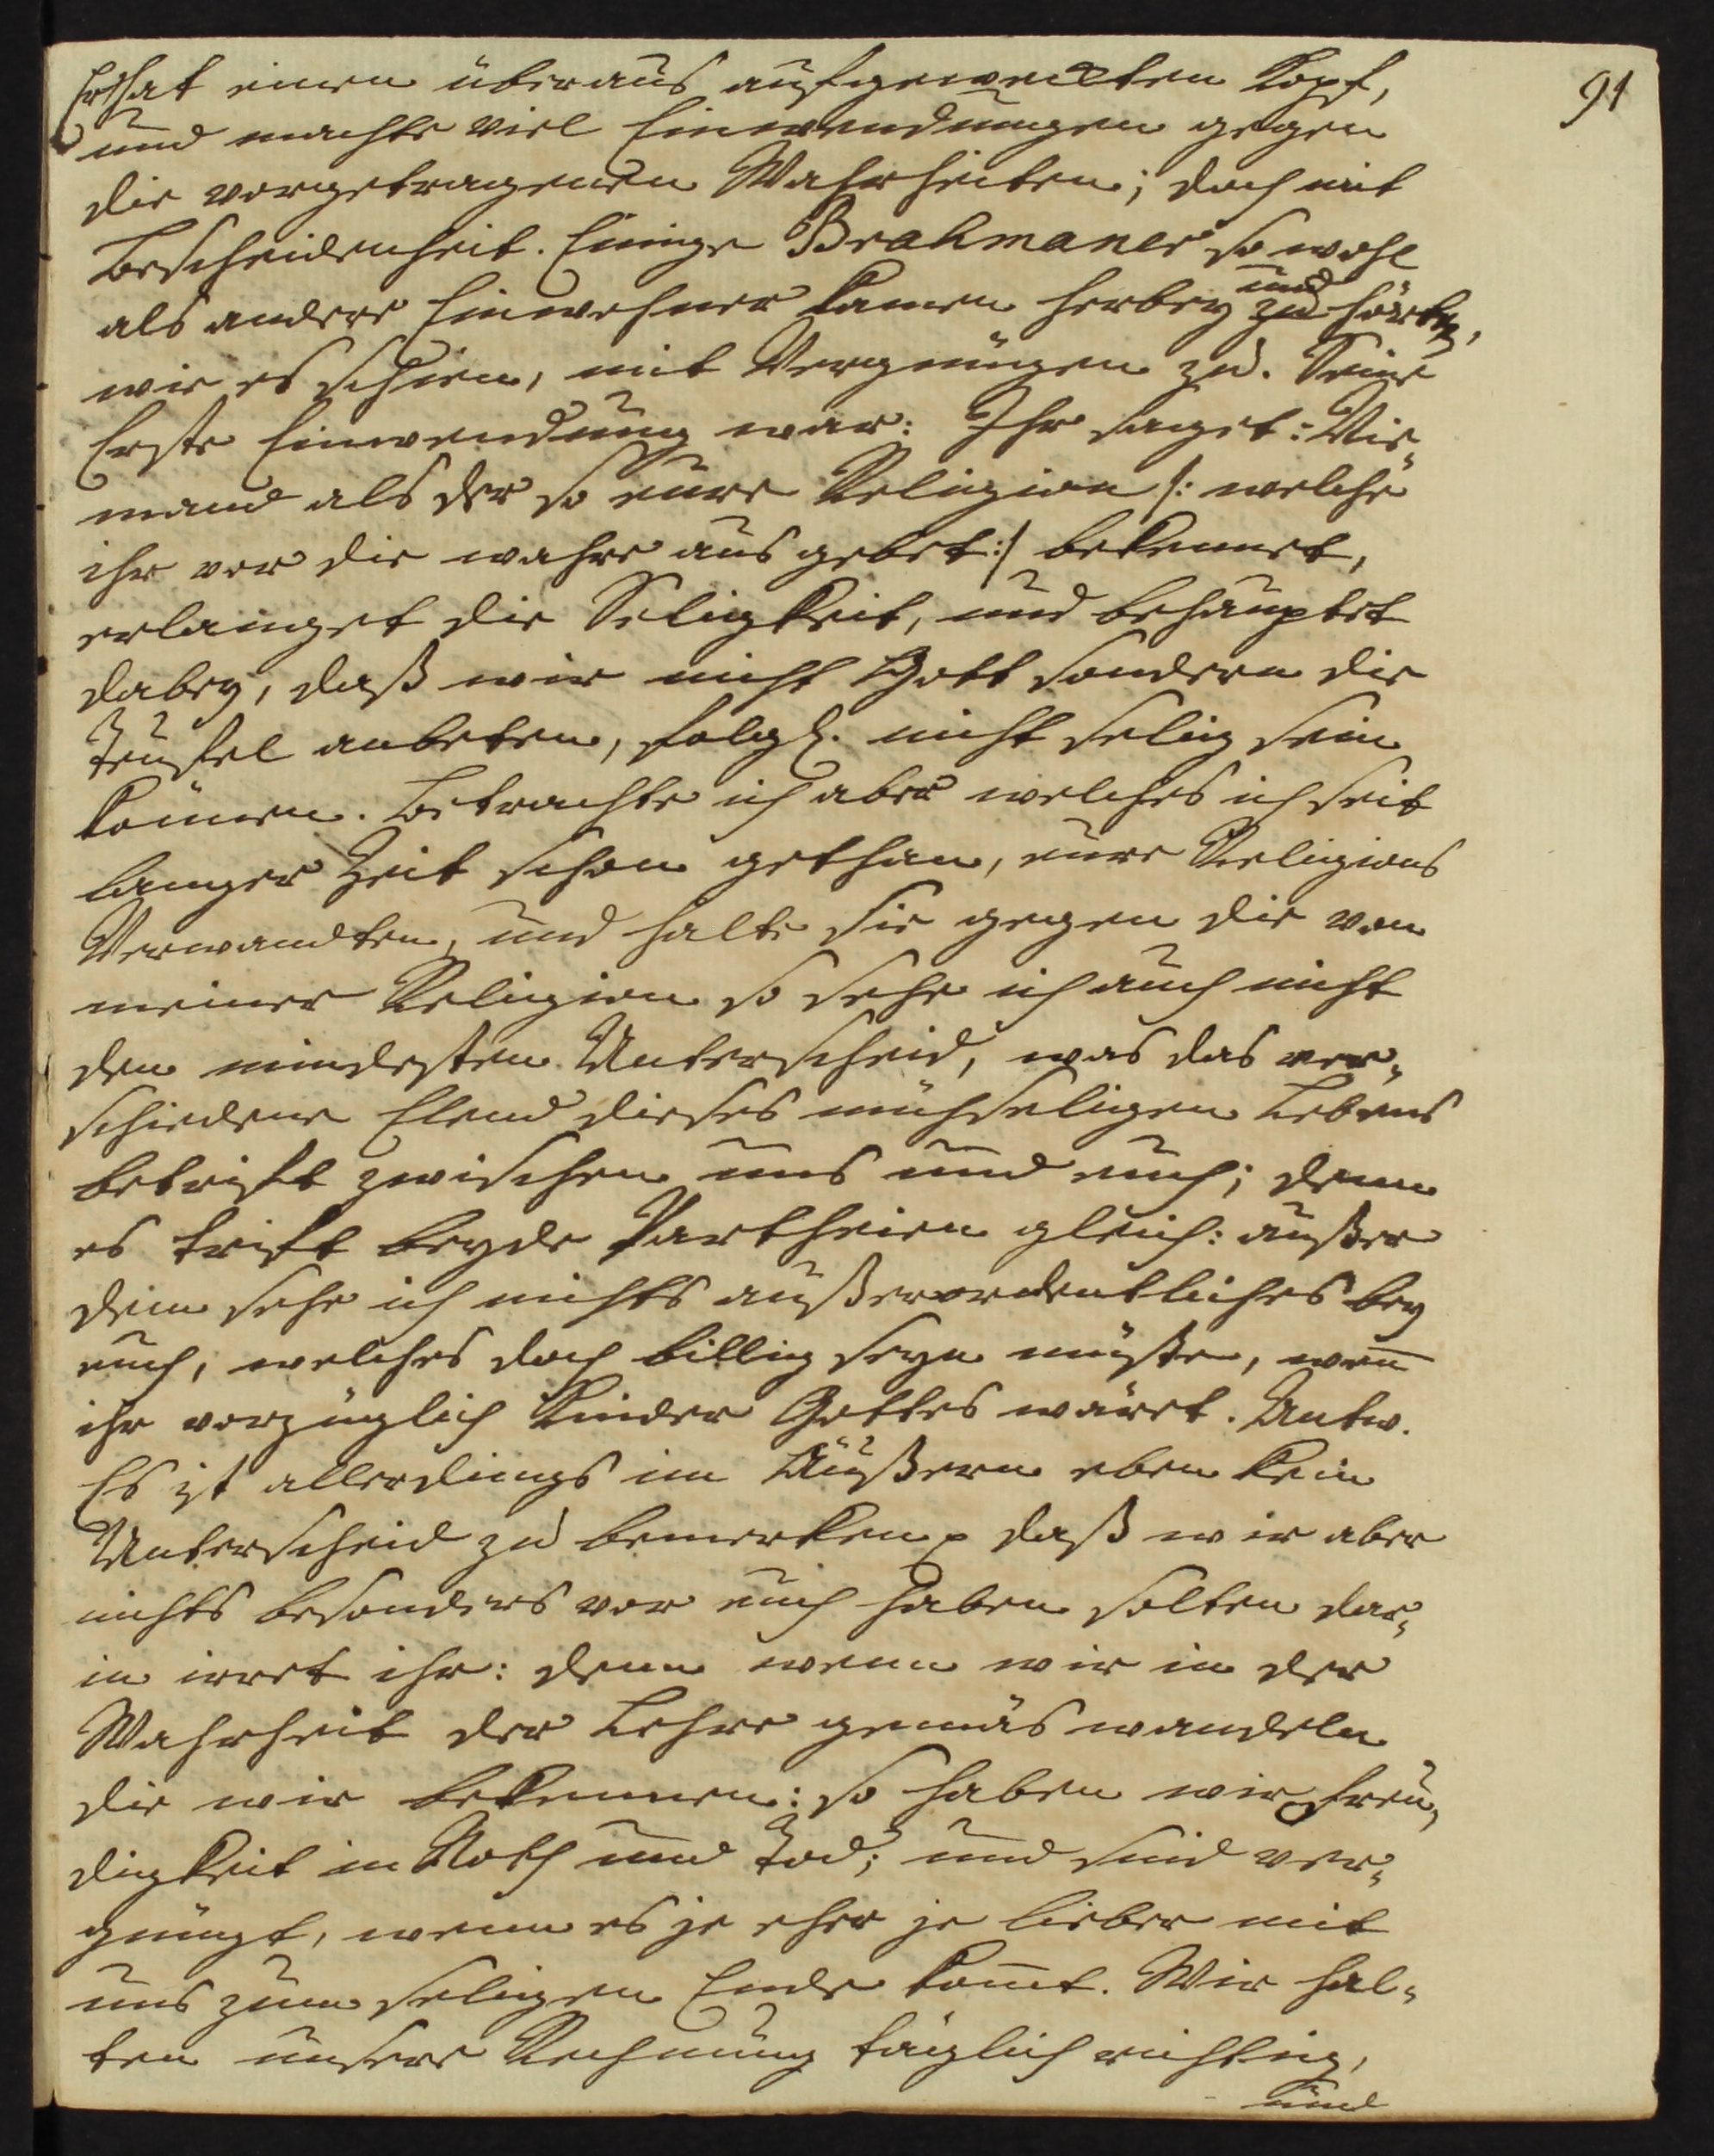 91
Er hat einen überaus aufgeweckten Kopf,
und machte viel Einwendungen gegen
die vorgetragenen Wahrheiten; doch mit
Bescheidenheit. Einige Brahmaner so wohl
als andere Einwohner kamen herbey und hörten,
wie es schien, mit Vergnügen zu. Seine
Erste Einwendung war: Ihr saget: Nie-
mand als der so eure Religion /: welche
ihr vor die wahre aus gebet :/ bekennet,
erlanget die Seligkeit, und behauptet
dabey, daß wir nicht Gott sondern die
Teufel anbeten, folgl. nicht selig sein
können. Betrachte ich aber welches ich seit
langer Zeit schon gethan, eure Religions
Verwandten, und halte sie gegen die von
meiner Religion so sehe ich auch nicht
den mindesten Unterscheid, was das ver-
schiedene Elend dieses mühseligen Lebens
betrift zwischen uns und euch; denn
es trift beyde Partheien gleich: außer
dem sehe ich nichts außerordentliches bey
euch, welches doch billig seyn müste, weñ
ihr vorzüglich Kinder Gottes wäret. Antw.
Es ist allerdings im Äußern eben kein
Unterscheid zu bemerken, daß wir aber
nichts besonders vor euch haben solten dar-
in irret ihr: denn wenn wir in der
Wahrheit der Lehre gemäs wandeln
die wir bekennen: so haben wir Freu-
digkeit in Noth und Tod; und sind ver-
gnügt, wenn es je eher je lieber mit
uns zum seligen Ende kom̄t. Wir hal-
ten unsere Rechnung täglich richtig,
und